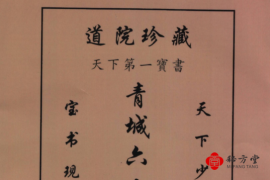 道院珍藏
天下第一寶書
天下少
青城六
宝书现
秘方堂